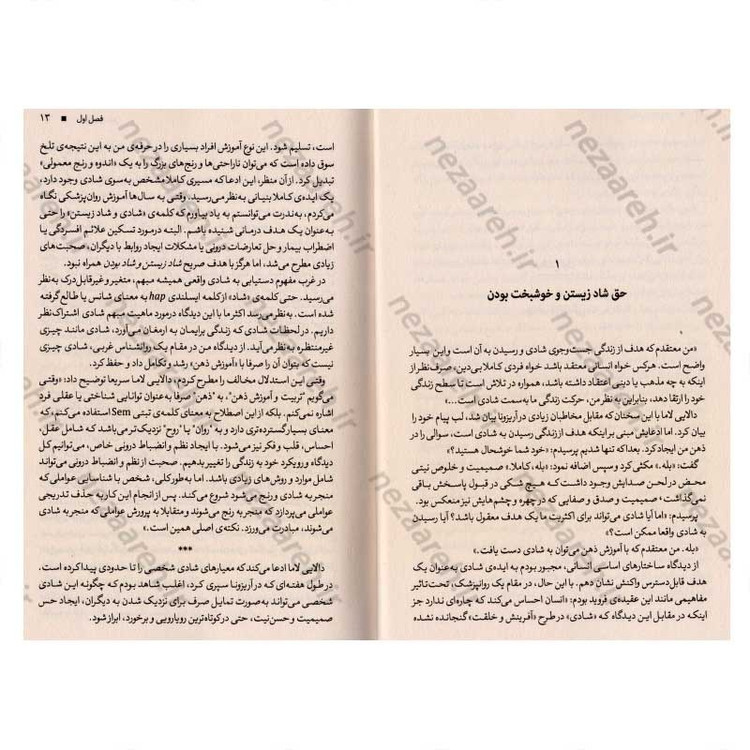 ۱
حق شاد زیستن و خوشبخت بودن
«من معتقدم که هدف از زندگی جست‌وجوی شادی و رسیدن به آن است و این بسیار
واضح است. هرکس خواه انسانی معتقد باشد خواه فردی کاملا بی‌دین، صرف‌نظر از
اینکه به چه مذهب یا دینی اعتقاد داشته باشد، همواره در تلاش است تا سطح زندگی
خود را ارتقا دهد، بنابراین به نظر من، حرکت زندگی ما به سمت شادی است...»
دالایی لاما با این سخنان که مقابل مخاطبان زیادی در آریزونا بیان شد، لب پیام خود را
بیان کرد. اما ادعایش مبنی بر اینکه هدف از زندگی رسیدن به شادی است، سوالی را در
ذهن من ایجاد کرد. بعدا که تنها شدیم پرسیدم: «خود شما خوشحال هستید؟»
گفت: «بله.» مکثی کرد و سپس اضافه نمود: «بله، کاملا.» صمیمیت و خلوص نیتی
محض در لحن صدایش وجود داشت که هیچ شکی در قبول پاسخش باقی
نمی‌گذاشت - صمیمیت و صدق و صفایی که در چهره و چشم‌هایش نیز منعکس بود.
پرسیدم: «اما آیا شادی می‌تواند برای اکثریت ما یک هدف معقول باشد؟ آیا رسیدن
به شادی واقعا ممکن است؟»
«بله. من معتقدم که با آموزش ذهن می‌توان به شادی دست یافت.»
از دیدگاه ساختارهای اساسی انسانی، مجبور بودم به ایده‌ی شادی به‌عنوان یک
هدف قابل‌دسترس واکنش نشان دهم. با این حال، در مقام یک روانپزشک، تحت‌تاثیر
مفاهیمی مانند این عقیده‌ی فروید بودم: «انسان احساس می‌کند که چاره‌ای ندارد جز
اینکه در مقابل این دیدگاه که «شادی» در طرح «آفرینش و خلقت» گنجانده نشده
فصل اول ■ ۱۳
است، تسلیم شود. این نوع آموزش افراد بسیاری را در حرفه‌ی من به این نتیجه‌ی تلخ
سوق داده است که می‌توان ناراحتی‌ها و رنج‌های بزرگ را به یک «اندوه و رنج معمولی»
تبدیل کرد. از آن منظر، این ادعا که مسیری کاملا مشخص به‌سوی شادی وجود دارد،
یک ایده‌ی کاملا بنیانی به‌نظر می‌رسید. وقتی به سال‌ها آموزش روان‌پزشکی نگاه
می‌کردم، به‌ندرت می‌توانستم به یاد بیاورم که کلمه‌ی «شادی و شاد زیستن» را حتی
به‌عنوان یک هدف درمانی شنیده باشم. البته درمورد تسکین علائم افسردگی یا
اضطراب بیمار و حل تعارضات درونی یا مشکلات ایجاد روابط با دیگران، صحبت‌های
زیادی مطرح می‌شد، اما هرگز با هدف صریح شاد زیستن و شاد بودن همراه نبود.
در غرب مفهوم دستیابی به شادی واقعی همیشه مبهم، متغیر و غیرقابل‌درک به‌نظر
می‌رسید. حتی کلمه‌ی «شاد» از کلمه ایسلندی hap به معنای شانس یا طالع گرفته
شده است. به‌نظر می‌رسد اکثر ما با این دیدگاه درمورد ماهیت مبهم شادی اشتراک‌نظر
داریم. در لحظات شادی که زندگی برایمان به ارمغان می‌آورد، شادی مانند چیزی
غیرمنتظره به‌نظر می‌آید. از دیدگاه من در مقام یک روانشناس غربی، شادی چیزی
نیست که بتوان آن را صرفا با «آموزش ذهن» رشد و تکامل داد و حفظ کرد.
وقتی این استدلال مخالف را مطرح کردم، دالایی لاما سریعا توضیح داد: «وقتی
می‌گویم "تربیت و آموزش ذهن"، به "ذهن" صرفا به‌عنوان توانایی شناختی یا عقلی فرد
اشاره نمی‌کنم. بلکه از این اصطلاح به معنای کلمه‌ی تبتی Sem استفاده می‌کنم، که
معنای بسیار گسترده‌تری دارد و به "روان" یا "روح" نزدیک‌تر می‌باشد که شامل عقل،
احساس، قلب و فکر نیز می‌شود. با ایجاد نظم و انضباط درونی خاص، می‌توانیم کل
دیدگاه و رویکرد خود به زندگی را تغییر بدهیم. صحبت از نظم و انضباط درونی می‌تواند
شامل موارد و روش‌های زیادی باشد. اما به‌طورکلی، شخص با شناسایی عواملی که
منجر به شادی و رنج می‌شود شروع می‌کند. پس از انجام این کار به حذف تدریجی
عواملی می‌پردازد که منجر به رنج می‌شوند و متقابلا به پرورش عواملی که منجر به شادی
می‌شوند، مبادرت می‌ورزد. نکته‌ی اصلی همین است.»
***
دالایی لاما ادعا می‌کند که معیارهای شادی شخصی را تا حدودی پیدا کرده است.
در طول هفته‌ای که در آریزونا سپری کرد، اغلب شاهد بودم که چگونه این شادی
شخصی می‌تواند به‌صورت تمایل صرف برای نزدیک شدن به دیگران، ایجاد حس
صمیمیت و حسن‌نیت، حتی در کوتاه‌ترین رویارویی و برخورد، ابراز شود.
nezaareh.ir